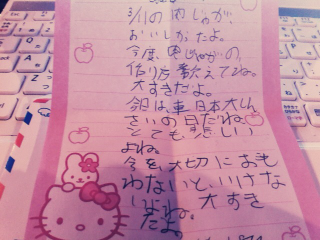 3/11の肉じゃが、
おいしかったよ。
今度、肉じゃがの、
作り方教えてね。
大すきだよ。
今日は東日本大しん
さいの日だね。
とても悲しい
よね。
今を大切におも
わないと、いけな
いよね。大すき
だよ。